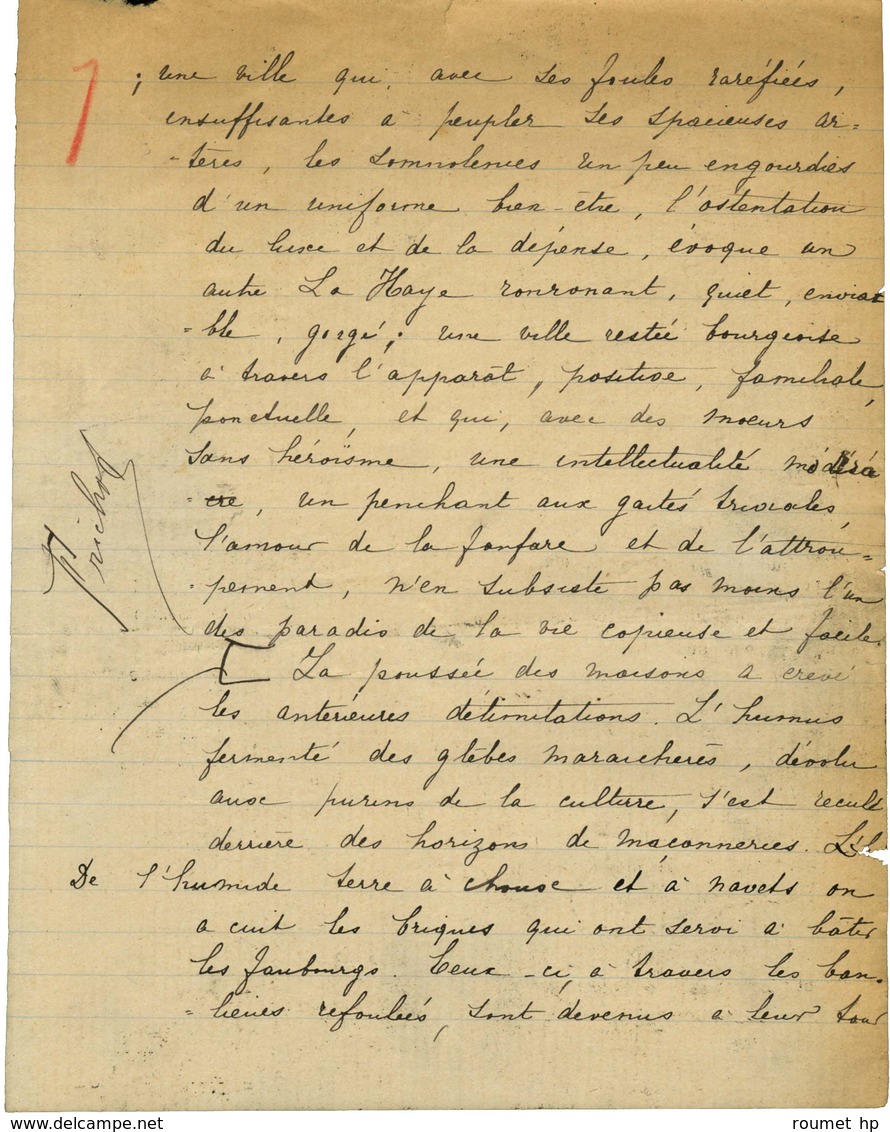 ; une ville qui, avec ses foules raréfiées,
insuffisantes à peupler ses spacieuses ar=
=tères, les somnolences un peu engourdies
d'un uniforme bien-être, l'ostentation
du luxe et de la dépense, évoque un
autre La Haye ronronant, quiet, envia
=ble, gorgé; une ville restée bourgeoise
à travers l'apparât, positive, familiale,
ponctuelle, et qui, avec des moeurs
sans héroïsme, une intellectualité modéré
=ere, un penchant aux gaités triviales,
l'amour de la fanfare et de l'attrou=
=pement, n'en subsiste pas moins l'un
des paradis de la vie copieuse et facile.
[ La poussée des maisons a crevé
les antérieures délimitations. L'humus
fermenté des glèbes maraichères, dévolu
aux purins de la culture, s'est reculé
derrière des horizons de maçonneries.
De l'humide terre à choux et à navets on
a cuit les briques qui ont servi à bâtir
les faubourgs. Ceux-ci, à travers les ban-
=lieues refoulées, sont devenus à leur tour
roumet hp